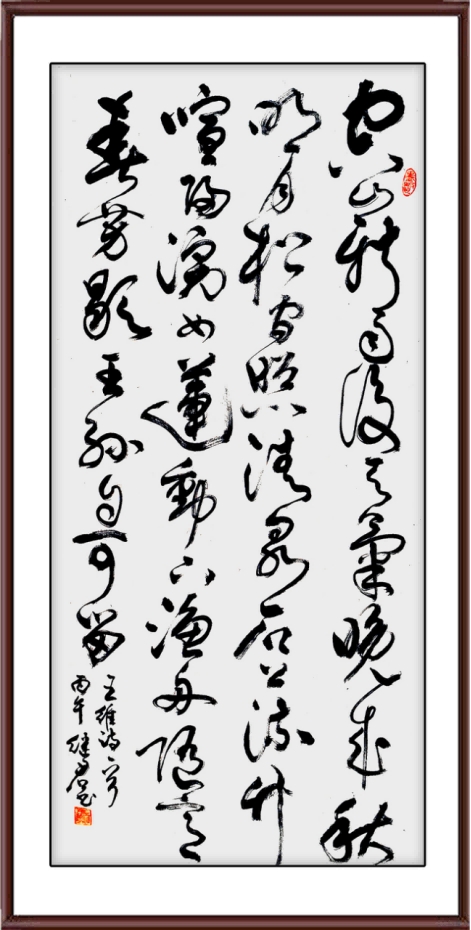 空山新雨後天氣晚來秋
明月松間照清泉石上流竹
喧歸浣女蓮動下漁舟隨意
春芳歇王孫自可留
王維詩一首
丙午